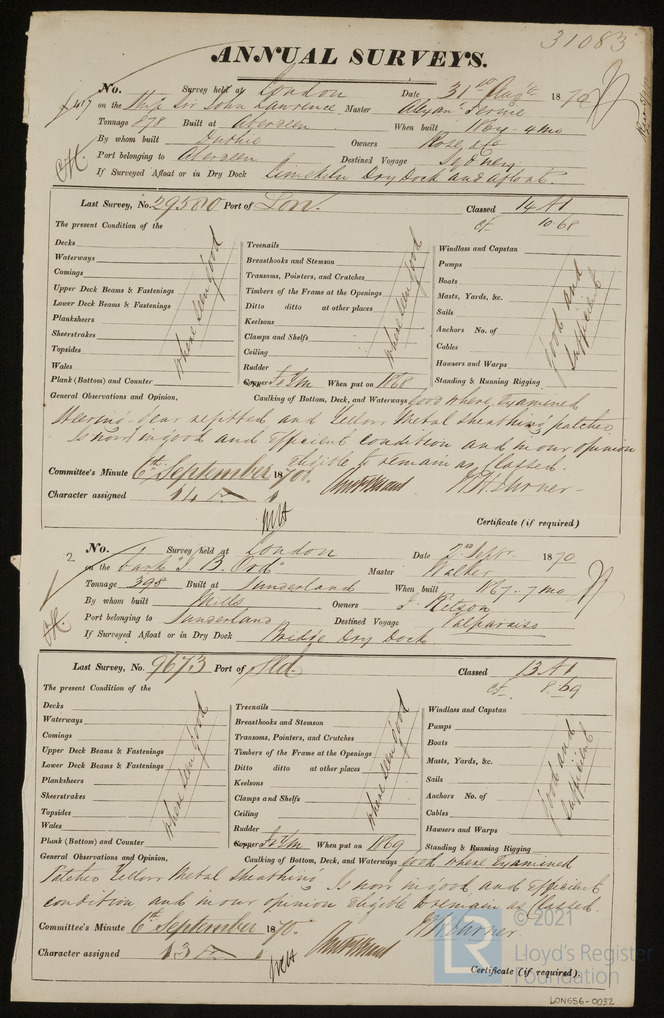 31083
ANNUAL SURVEYS.
No. Survey held at London Date 31st Augt 1870
on the Ship Sir John Lawrence Master Alexanr
Tonnage 878 Built at Aberdeen When built 1867 - 4 mo
By whom built Duthie Owners Rose, & Co
Port belonging to Aberdeen Destined Voyage Sydney
If Surveyed Afloat or in Dry Dock Limekiln Dry Dock and afloat.
Last Survey, No. 29580 Port of Lon. Classed 14 A1
10.68
The present Condition of the
Decks
Waterways
Comings
Upper Deck Beams & Fastenings
Lower Deck Beams & Fastenings
Planksheers
Sheerstrakes
Topsides
Wales
Plank (Bottom) and Counter
where seen good
Treenails
Breasthooks and Stemson
Transoms, Pointers, and Crutches
Timbers of the Frame at the Openings
Ditto ditto at other places
Keelsons
Clamps and Shelfs
Ceiling
Rudder
Copper When put on 1868
where seen good
Windlass and Capstan
Pumps
Boats
Masts, Yards, &c.
Sails
Anchors No. of
Cables
Hawsers and Warps
Standing & Running Rigging
good and
sufficient
General Observations and Opinion, Caulking of Bottom, Deck, and Waterways good where Examined
Steering Gear refitted and Yellow Metal Sheathing patched
Is now in good and efficient condition and in our opinion
eligible to remain as Classed.
Committee's Minute 6th September 1870
Character assigned 14 A 1
Certificate (if required)
2 No. Survey held at London Date 2nd Sepr. 1870
on the Bark Master Walker
Tonnage 395 Built at Sunderland When built 1867 - 7 mo
By whom built Mills Owners F. Ritson
Port belonging to Sunderland Destined Voyage Valparaiso
If Surveyed Afloat or in Dry Dock Dry Dock
Last Survey, No. 9673 Port of Sld. Classed 13 A1
8.69
The present Condition of the
Decks
Waterways
Comings
Upper Deck Beams & Fastenings
Lower Deck Beams & Fastenings
Planksheers
Sheerstrakes
Topsides
Wales
Plank (Bottom) and Counter
where seen good
Treenails
Breasthooks and Stemson
Transoms, Pointers, and Crutches
Timbers of the Frame at the Openings
Ditto ditto at other places
Keelsons
Clamps and Shelfs
Ceiling
Rudder
Copper When put on 1869
where seen good
Windlass and Capstan
Pumps
Boats
Masts, Yards, &c.
Sails
Anchors No. of
Cables
Hawsers and Warps
Standing & Running Rigging
good and
sufficient
General Observations and Opinion, Caulking of Bottom, Deck, and Waterways good where Examined
Patched Yellow Metal Sheathing. Is now in good and efficient
condition and in our opinion eligible to remain as Classed.
Committee's Minute 6th September 1870.
Character assigned 13 A 1
Certificate (if required).
© 2021
LR
Lloyd's Register
Foundation
LON656-0032